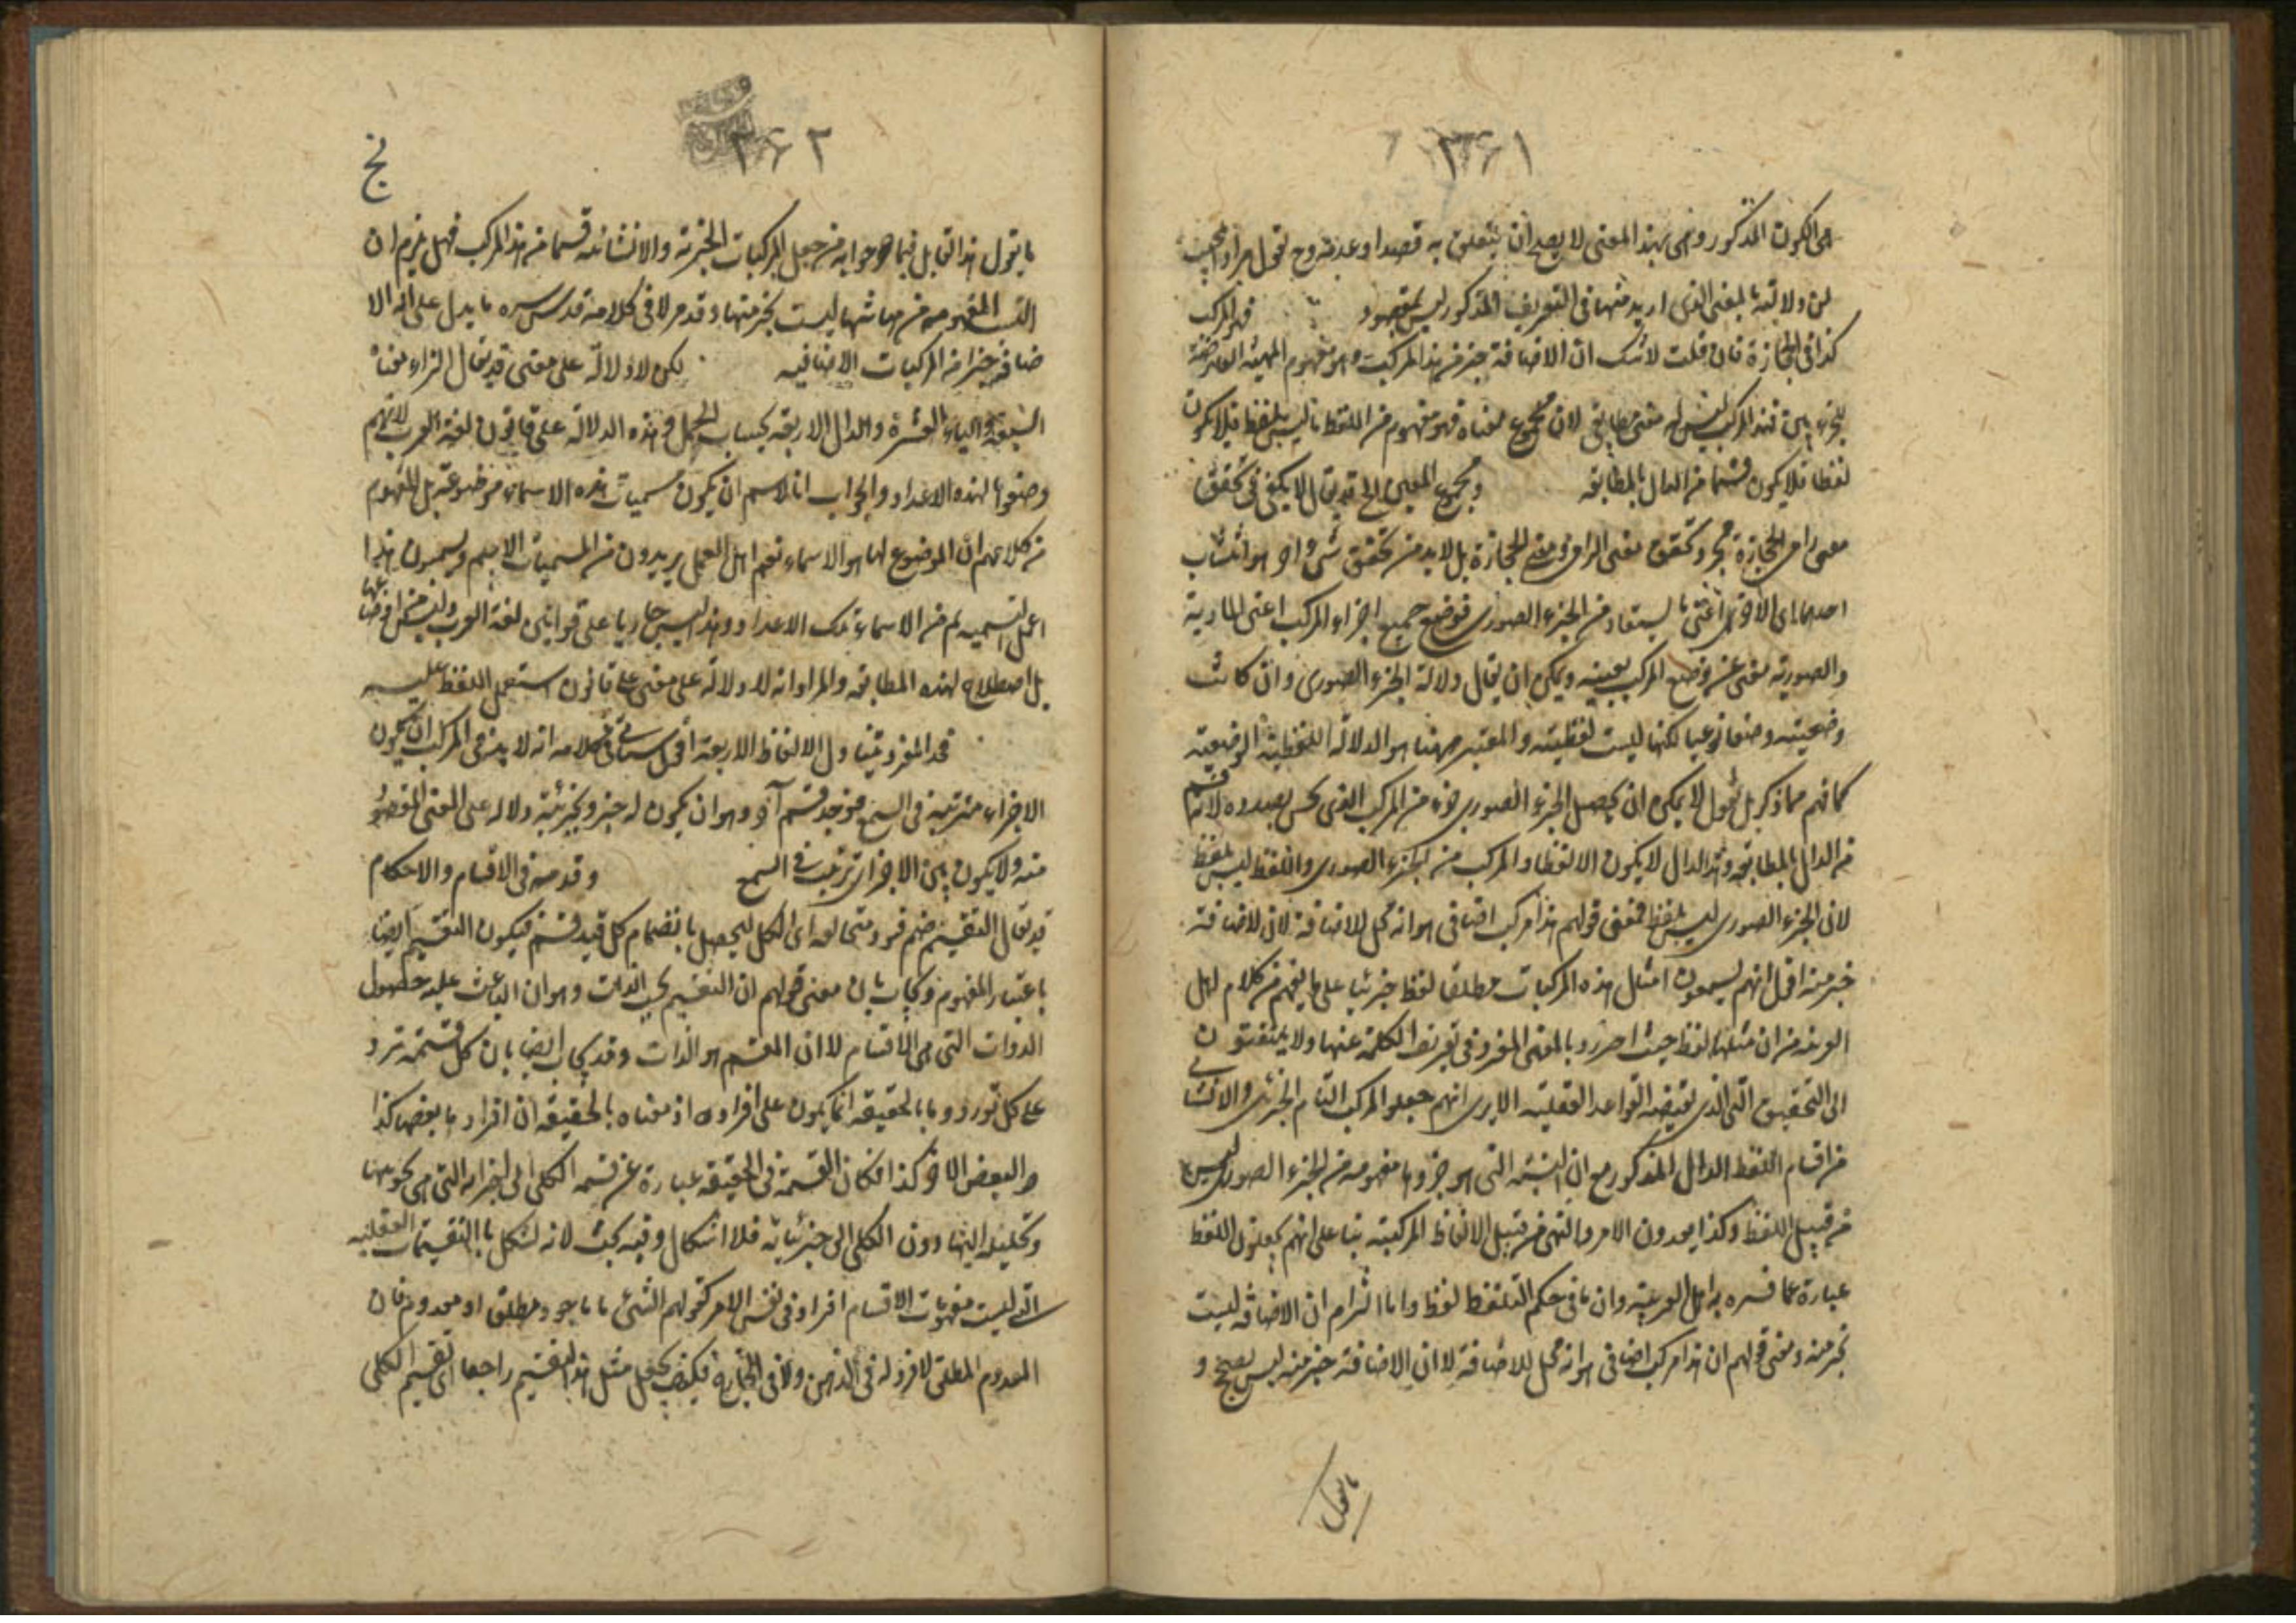 ٣٦١
هى الكون المذكور وهى بهذا المعنى لا يصح ان يتعلق به قصدا او عدمه وح نقول مراد المجيب
ان دلالته بالمعنى الذى اريد منها فى التعريف المذكور ليس بمقصود فهو المركب
كذا فى الحجارة فان قلت لا شك ان الاضافة جزء من هذا المركب وهو مفهوم الهيئة العارضة
فهذا المركب ليس له معنى مطابقى لان مجموع معناه فهو مفهوم من اللفظ ما ليس بلفظ فلا يكون
لفظا فلا يكون قسما من الدال بالمطابقة ومجموع المعنيين الخ قد يقال لا يكفى فى تحقق
معنى رامى الحجارة مجرد تحقق معنى الرامى ومعنى الحجارة بل لا بد من تحقق شىء آخر هو انتساب
احدهما الى الآخر اعنى ما يستفاد من الجزء الصورى فوضع جميع اجزاء المركب اعنى المادية
والصورية يغنى عن وضع المركب بعينه ويمكن ان يقال دلالة الجزء الصورى وان كانت
وضعية وضعا نوعيا لكنها ليست لفظية والمعتبر ههنا هو الدلالة اللفظية الوضعية
كما فهم مما ذكر بل نقول لا يمكن ان يحصل الجزء الصورى جزء من المركب الذى نحن بصدده لانه قسم
من الدال بالمطابقة وهذا الدال لا يكون الا لفظا والمركب من الجزء الصورى واللفظ ليس بلفظ
لان الجزء الصورى ليس بلفظ فمعنى قولهم هذا مركب اضافى هو انه محل للاضافة لا ان الاضافة
جزء منه اقول انهم يسمون امثال هذه المركبات مطلقا لفظ على ما يفهم من كلام اهل
العربية من ان مثلها لفظ حيث احترزوا بالمعنى المفرد فى تعريف الكلمة عنها ولا يلتفتون
الى التحقيق الذى تقتضيه القواعد العقلية الا يرى انهم جعلوا المركب التام الخبرى والانشائى
من اقسام اللفظ الدال المذكور مع ان النسبة التى هو جزؤها مفهومه من الجزء الصورى ليس
من قبيل اللفظ وكذا يعدون الامر والنهى من قبيل الالفاظ المركبة بناء على انهم يجعلون اللفظ
عبارة عما فسره به اهل العربية وان ما فى حكم التلفظ لفظ واما التزام ان الاضافة ليست
بجزء منه ومعنى قولهم ان هذا مركب اضافى هو انه محل للاضافة لا ان الاضافة جزء منه ليس بصحيح و
ما يقول
٣٦٢
نج
ما يقول هذا القائل فيما هو جوابه من جعل المركبات الخبرية والانشائية قسما من هذا المركب فهل يلزم ان
النسبة المفهومة من هيآتها ليست بجزء منها وقد مر لا فى كلامه قدس سره ما يدل على ان الا
ضافة جزء من المركبات الاضافيه لكن لا دلالة على معنى قد يقال الزاء معناه
السبعة والياء العشرة والدال الاربعة بحساب الجمل وهذه الدلالة على قانون لغة العرب لانهم
وضعوها لهذه الاعداد والجواب انا لا نسلم ان يكون مسميات هذه الاسماء موضوعة بل المفهوم
من كلامهم ان الموضوع لها هو الاسماء نعم اهل الجمل يريدون من المسميات الاسم ويسمون بهذا
التسميه لهم من الاسماء تلك الاعداد وهذا ليس جاريا على قوانين لغة العرب وليس من اوضاعها
بل اصطلاح لهذه المطابقة والمراد انه لا دلالة على معنى على قانون استعمل اللفظ عليه
فحد المفرد يتناول الالفاظ الاربعة اقول سيأتى فى كلامه انه لا يشترط فى المركب ان يكون
الاجزاء مترتبة فى السمع فيوجد قسم آخر وهو ان يكون له جزء ولجزئية دلاله على المعنى المقصود
منه ولا يكون بين الاجزاء ترتب فى السمع وقدمه فى الاقسام والاحكام
قد يقال التقسيم ضم قيود متخالفه الى الكل ليحصل بانضمام كل قيد قسم فيكون التقسيم ايضا
باعتبار المفهوم ويجاب بان معنى قولهم ان التقسيم بحسب الذات وهو ان الباعث عليه حصول
الذوات التى هى الاقسام لا ان المقسم هو الذات وقد يجاب ايضا بان كل قسمة ترد
على كل تورودها بالحقيقة انما يكون على افراده اذ معناه بالحقيقة ان افراد ما بعضها كذا
والبعض الآخر كذا فكان القسمة فى الحقيقة عبارة عن قسمة الكلى الى اجزائه التى هى
وتحليله اليها دون الكلى الى جزئياته فلا اشكال وفيه بحث لانه يشكل بالتقسيمات العقليه
التى ليست مفهومات الاقسام افراد فى نفس الامر كقولهم الشىء اما موجود مطلق او معدوم فان
المعدوم المطلق لا فرد له فى الذهن ولا فى الخارج فكيف يجعل مثل هذا التقسيم راجعا الى تقسيم الكلى